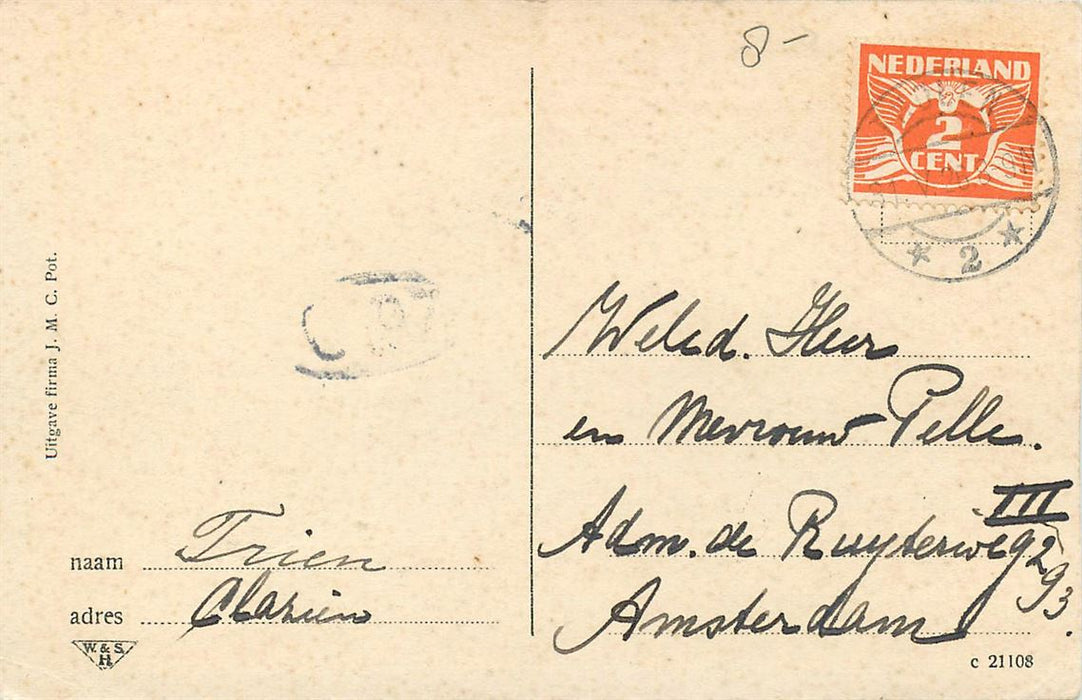 8-
NEDERLAND
2
CENT
2
Uitgave firma J. M. C. Pot.
Weled. Heer
en Mevrouw Pelle.
III
Adm. de Ruyterweg 293.
Amsterdam
naam Trien
adres Clasien
W. & S.
H
c 21108